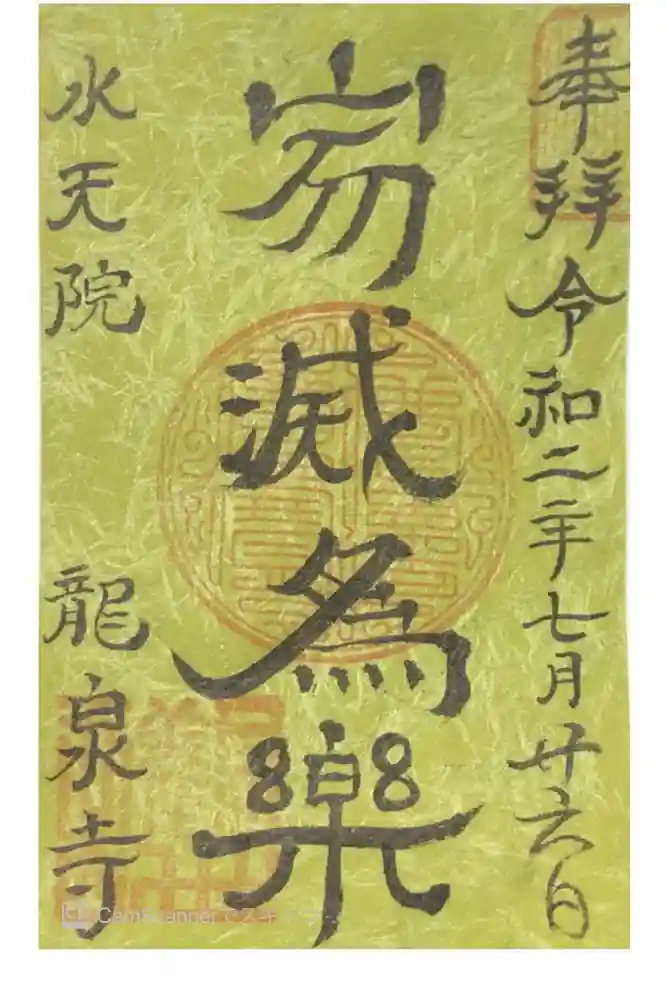 奉拜令和二年七月廿六日
寂滅為樂
水天院 龍泉寺
CamScannerでスキャン